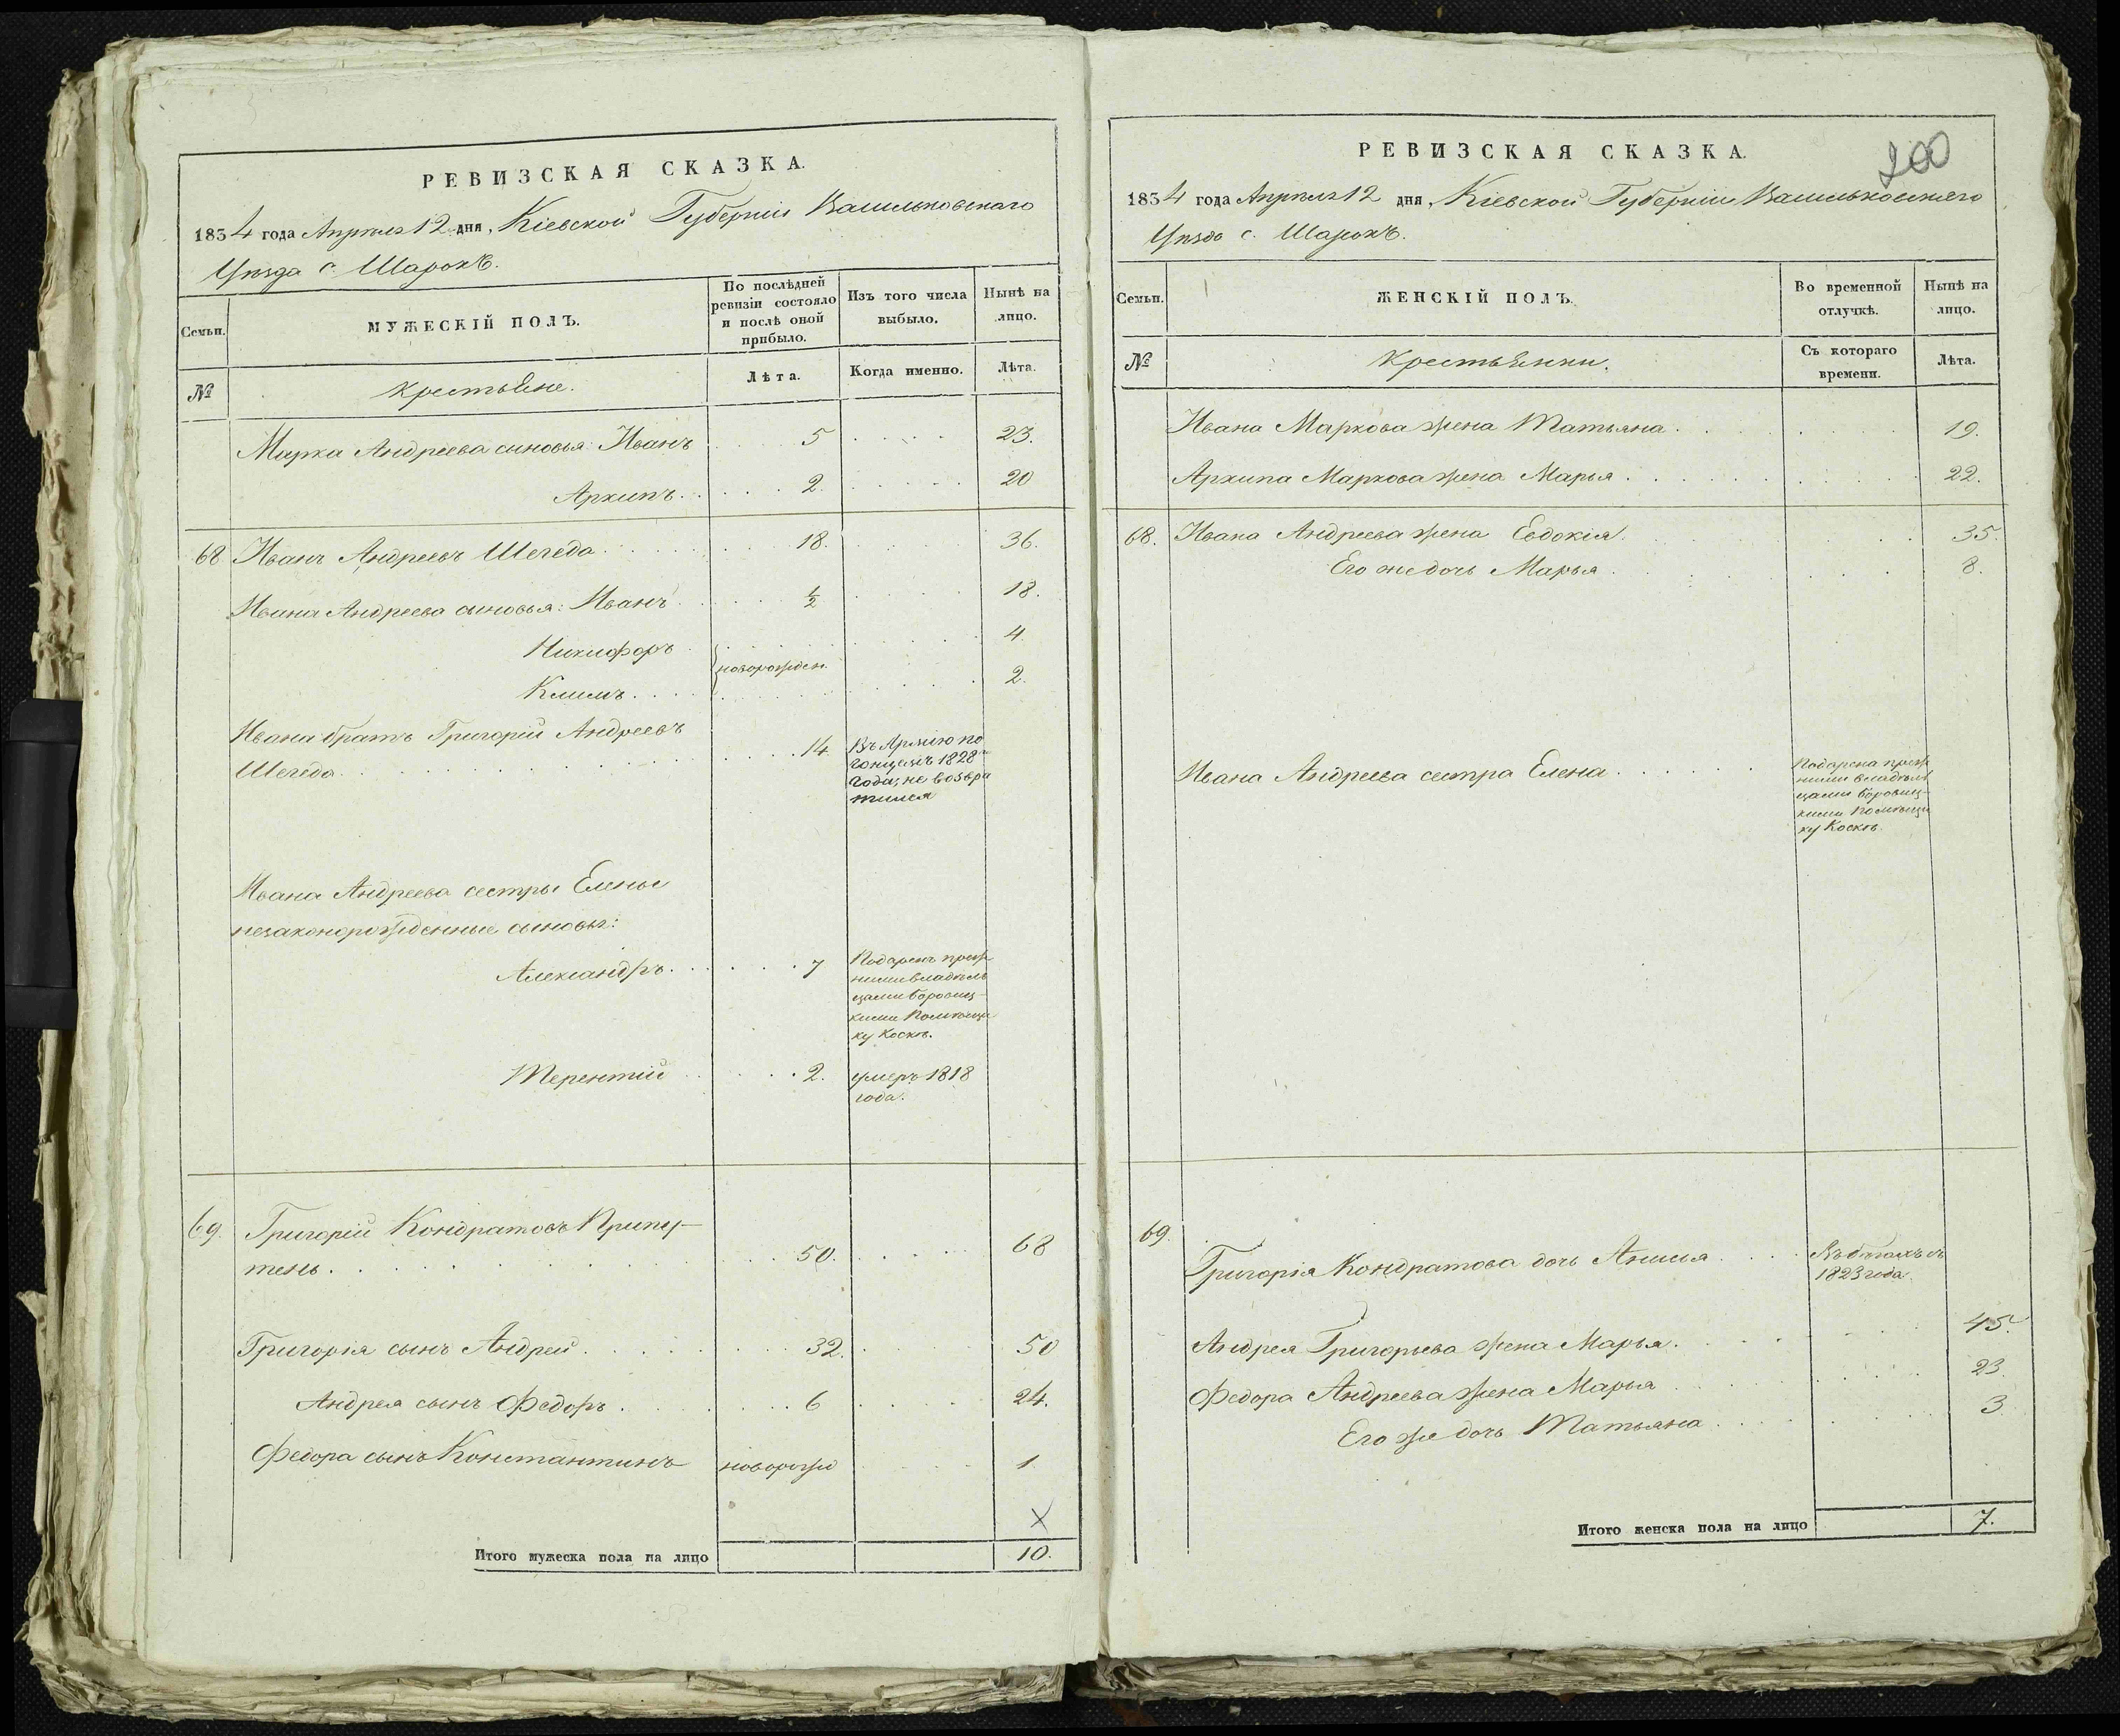 РЕВИЗСКАЯ СКАЗКА.
1834 года Апрѣля 12 дня, Кіевской Губерніи Васильковскаго
Уѣзда с. Шарокъ.
Семьи.
МУЖЕСКІЙ ПОЛЪ.
По послѣдней ревизіи состояло и послѣ оной прибыло.
Изъ того числа выбыло.
Нынѣ на лицо.
№
крестьяне.
Лѣта.
Когда именно.
Лѣта.
Марка Андреева сыновья: Иванъ 5 23.
Архипъ 2. 20
68 Иванъ Андреевъ Шегеда 18. 36.
Ивана Андреева сыновья: Иванъ ½ 18.
Никифоръ 4.
новорожден.
Климъ 2.
Ивана братъ Григорій Андреевъ
Шегеда 14.
Въ Армію по
гонцемъ 1828
года, не возвра
тился
Ивана Андреева сестры Елены
незаконорожденные сыновья:
Александръ 7
Подаренъ преж
ними владѣль
цами Боровиц-
кими Помѣщи
ку Коскѣ.
Терентій 2. умеръ 1818
года.
69. Григорій Кондратовъ Припу-
тень 50. 68
Григорія сынъ Андрей 32. 50
Андрея сынъ Федоръ 6 24.
Федора сынъ Константинъ новорож 1
Итого мужеска пола на лицо 10.
200
РЕВИЗСКАЯ СКАЗКА.
1834 года Апрѣля 12 дня, Кіевской Губерніи Васильковскаго
Уѣзда с. Шарокъ.
Семьи.
ЖЕНСКІЙ ПОЛЪ.
Во временной отлучкѣ.
Нынѣ на лицо.
№
крестьянки.
Съ котораго времени.
Лѣта.
Ивана Маркова жена Татьяна 19.
Архипа Маркова жена Марья 22.
68. Ивана Андреева жена Евдокія 35.
Его же дочь Марья 8.
Ивана Андреева сестра Елена
Подарена преж
ними владѣль
цами Боровиц-
кими Помѣщи
ку Коскѣ.
69.
Григорія Кондратова дочь Анисья Въ бѣгахъ съ
1823 года.
Андрея Григорьева жена Марья. 45.
Федора Андреева жена Марья 23.
Его же дочь Татьяна 3
Итого женска пола на лицо 7.